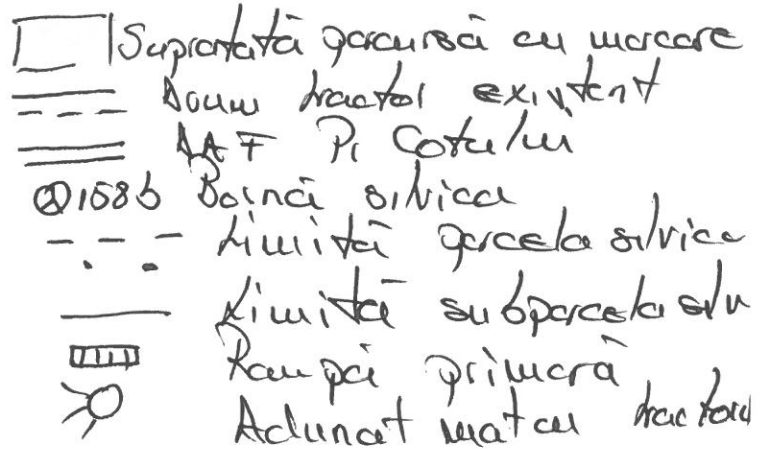 Suprafată parcursă cu marcare
Drum tractor existent
DAF Pr Cotului
158b Bornă silvica
Limită parcela silvica
Limită subparcela silv
Rampă primară
Adunat mat cu tractorul